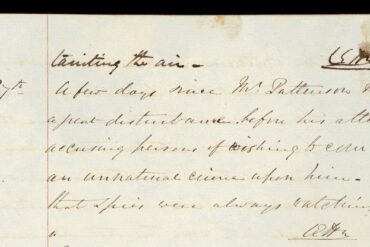 tainting the air –
A few days since Mr. Patterson
a great disturbance before his
accusing persons of wishing to
an unnatural crime upon him –
that spies were always watching